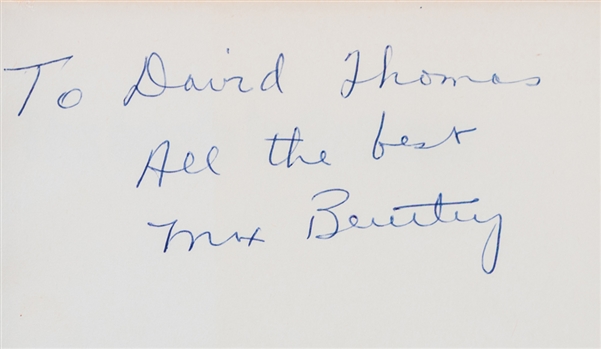 To David Thomas
All the best
Max Bentley